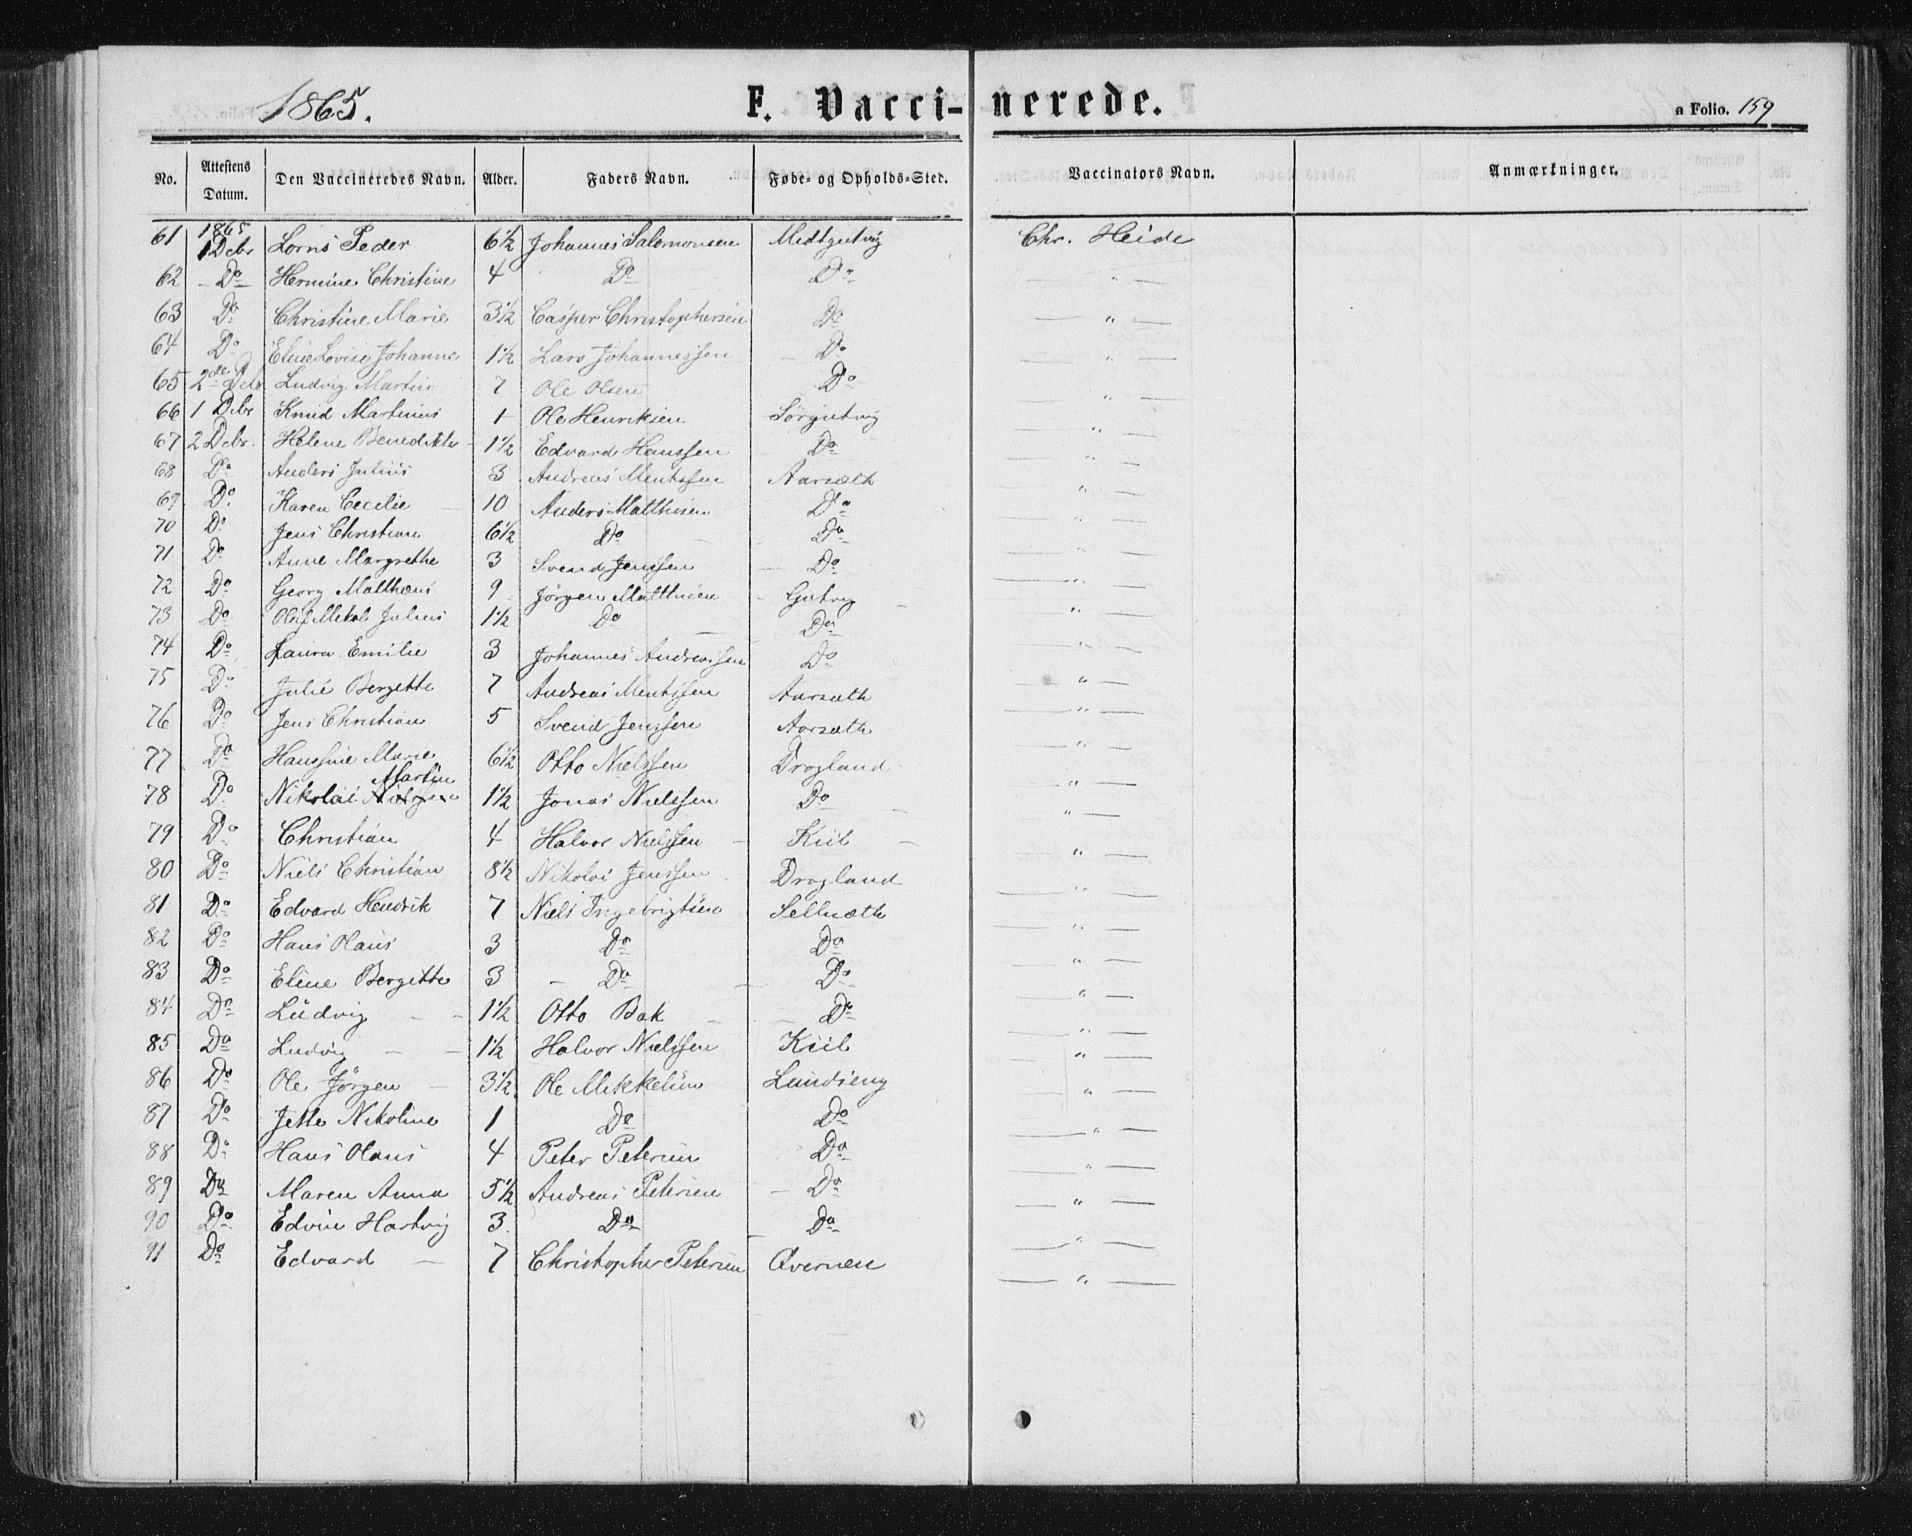 1865. F. Vacci- nerede. a Folio. 159
No. Attestens Datum. Den Vaccineredes Navn. Alder. Faders Navn. Føde- og Opholds-Sted. Vaccinators Navn. Anmærkninger.
1865
61 1 Decbr Lorns Peder 6½ Johannes Salomonsen Midtgutvig Chr. Heide
62 - Do Hermine Christine 4 Do Do — " —
63 Do Christine Marie 3½ Casper Christophersen Do — " —
64 Do Eline Lovise Johanne 1½ Lars Johannessen - Do — " —
65 2de Dcbr Ludvig Martin 7 Ole Olsen Do — " —
66 1 Dcbr Knud Martinus 1 Ole Henriksen Sørgutvig — " —
67 2 Dcbr. Helene Benedikte 1½ Edvard Hanssen Do — " —
68 Do Anders Julius 3 Andreas Mentssen Aarsæth — " —
69 Do Karen Cecilie 10 Anders Matthisen Do — " —
70 Do Jens Christian 6½ Do Do — " —
71 Do Anne Margrethe 3 Svend Jenssen Do — " —
72 Do Georg Matthæus 9 Jörgen Matthisen Gutvig — " —
73 Do Julius 1½ Do Do — " —
74 Do Laura Emilie 3 Johannes Andreassen Do — " —
75 Do Julie Bergette 7 Andreas Mentssen Aarsæth — " —
76 Do Jens Christian 5 Svend Jenssen Aarsæth — " —
77 Do Hanssine Marie 6½ Otto Nielssen Drogland — " —
Martin
78 Do Nikolai 1½ Jonas Nielssen Do — " —
79 Do Christian 4 Halvor Nielssen Kiil — " —
80 Do Niels Christian 8½ Nikolai Jenssen Drogland — " —
81 Do Edvard Hendrik 7 Niels Ingebrigtsen Sellsæth — " —
82 Do Hans Olaus 3 Do Do — " —
83 Do Eline Bergette 3 - Do Do — " —
84 Do Ludvig 1½ Otto Bak Do — " —
85 Do Ludvig 1½ Halvor Nielssen Kiil — " —
86 Do Ole Jörgen 3½ Ole Mikkelsen Lundseng — " —
87 Do Jette Nikoline 1 Do Do — " —
88 Do Hans Olaus 4 Peter Petersen Do — " —
89 Do Maren Anna 5½ Andreas Petersen - Do — " —
90 Do Edvin Hartvig 3 Do Do — " —
91 Do Edvard 7 Christopher Petersen Øvernæs — " —